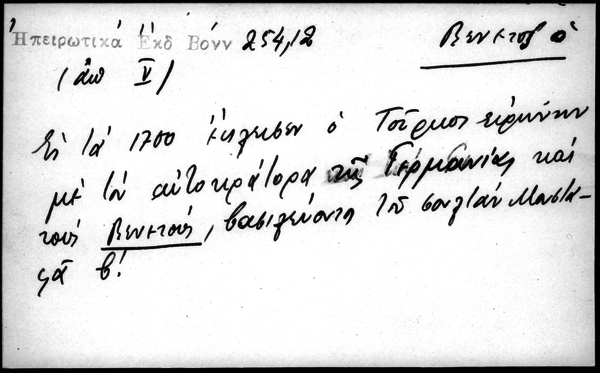 Ἠπειρωτικά Ἐκδ Βόνν 254,12
Βενετοί ὁ
(ἀπ V)
Εἰς τά 1700 ἔκλεισεν ὁ Τοῦρκος εἰρήνην
μέ τόν αὐτοκράτορα τῆς Γερμανίας καί
τούς Βενετούς, βασιλεύοντος τοῦ σουλτάν Μουστα-
φᾶ β!